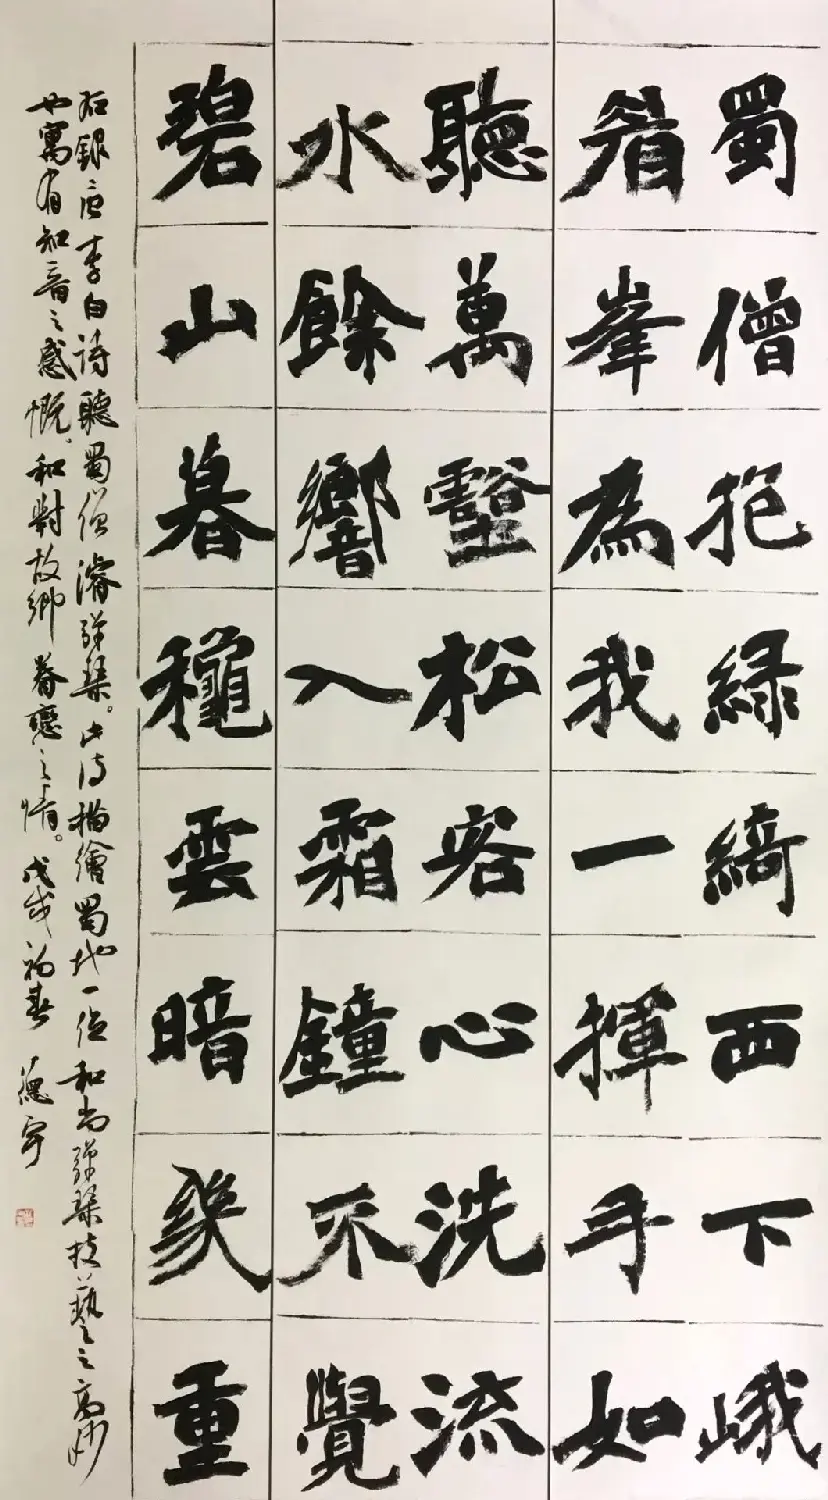 蜀僧抱緑綺西下峨
眉峯為我一揮手如
聽萬壑松客心洗流
水餘響入霜鐘不覺
碧山暮穐雲暗幾重
右録唐李白詩聽蜀僧濬彈琴。此詩描繪蜀地一位和尚彈琴技藝之高妙
也寓有知音之感慨。和對故鄉眷戀之情。戊戌初春